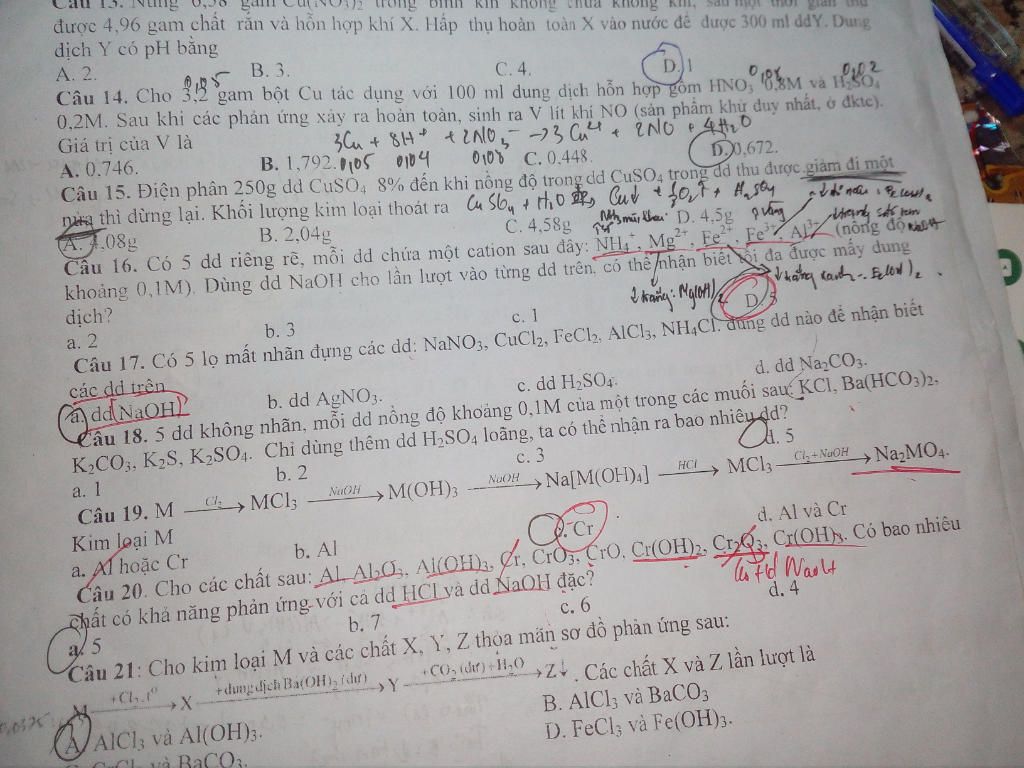 Câu 13. Nung 6,58 gam Cu(NO₃)₂ trong bình kín không chứa không khí, sau một thời gian thu
được 4,96 gam chất rắn và hỗn hợp khí X. Hấp thụ hoàn toàn X vào nước để được 300 ml ddY. Dung
dịch Y có pH bằng
A. 2. B. 3. C. 4. D. 1
0,05 0,08 0,02
Câu 14. Cho 3,2 gam bột Cu tác dụng với 100 ml dung dịch hỗn hợp gồm HNO₃ 0,8M và H₂SO₄
0,2M. Sau khi các phản ứng xảy ra hoàn toàn, sinh ra V lít khí NO (sản phẩm khử duy nhất, ở đktc).
Giá trị của V là
3Cu + 8H⁺ + 2NO₃⁻ → 3Cu²⁺ + 2NO + 4H₂O
A. 0,746. B. 1,792. C. 0,448. D. 0,672.
0,05 0,04 0,08
Câu 15. Điện phân 250g dd CuSO₄ 8% đến khi nồng độ trong dd CuSO₄ trong dd thu được giảm đi một
nửa thì dừng lại. Khối lượng kim loại thoát ra
CuSO₄ + H₂O Cu↓ + O₂↑ + H₂SO₄
A. 4,08g B. 2,04g C. 4,58g D. 4,5g
Câu 16. Có 5 dd riêng rẽ, mỗi dd chứa một cation sau đây: NH₄⁺, Mg²⁺, Fe²⁺, Fe³⁺, Al³⁺ (nồng độ
khoảng 0,1M). Dùng dd NaOH cho lần lượt vào từng dd trên, có thể nhận biết tối đa được mấy dung
dịch?
↓ trắng: Mg(OH)₂ ↓ trắng xanh - Fe(OH)₂
a. 2 b. 3 c. 1 D. 5
Câu 17. Có 5 lọ mất nhãn đựng các dd: NaNO₃, CuCl₂, FeCl₂, AlCl₃, NH₄Cl. dùng dd nào để nhận biết
các dd trên
a. dd NaOH b. dd AgNO₃. c. dd H₂SO₄. d. dd Na₂CO₃.
Câu 18. 5 dd không nhãn, mỗi dd nồng độ khoảng 0,1M của một trong các muối sau: KCl, Ba(HCO₃)₂,
K₂CO₃, K₂S, K₂SO₄. Chỉ dùng thêm dd H₂SO₄ loãng, ta có thể nhận ra bao nhiêu dd?
a. 1 b. 2 c. 3 d. 5
Câu 19. M —Cl₂→ MCl₃ —NaOH→ M(OH)₃ —NaOH→ Na[M(OH)₄] —HCl→ MCl₃ —Cl₂+NaOH→ Na₂MO₄.
Kim loại M
a. Al hoặc Cr b. Al c. Cr d. Al và Cr
Câu 20. Cho các chất sau: Al, Al₂O₃, Al(OH)₃, Cr, CrO₃, CrO, Cr(OH)₂, Cr₂O₃, Cr(OH)₃. Có bao nhiêu
chất có khả năng phản ứng với cả dd HCl và dd NaOH đặc?
a. 5 b. 7 c. 6 d. 4
Câu 21: Cho kim loại M và các chất X, Y, Z thỏa mãn sơ đồ phản ứng sau:
M —+Cl₂, t⁰→ X —+dung dịch Ba(OH)₂ (dư)→ Y —+CO₂ (dư)+H₂O→ Z↓ . Các chất X và Z lần lượt là
A. AlCl₃ và Al(OH)₃. B. AlCl₃ và BaCO₃
C. CrCl₃ và BaCO₃. D. FeCl₃ và Fe(OH)₃.